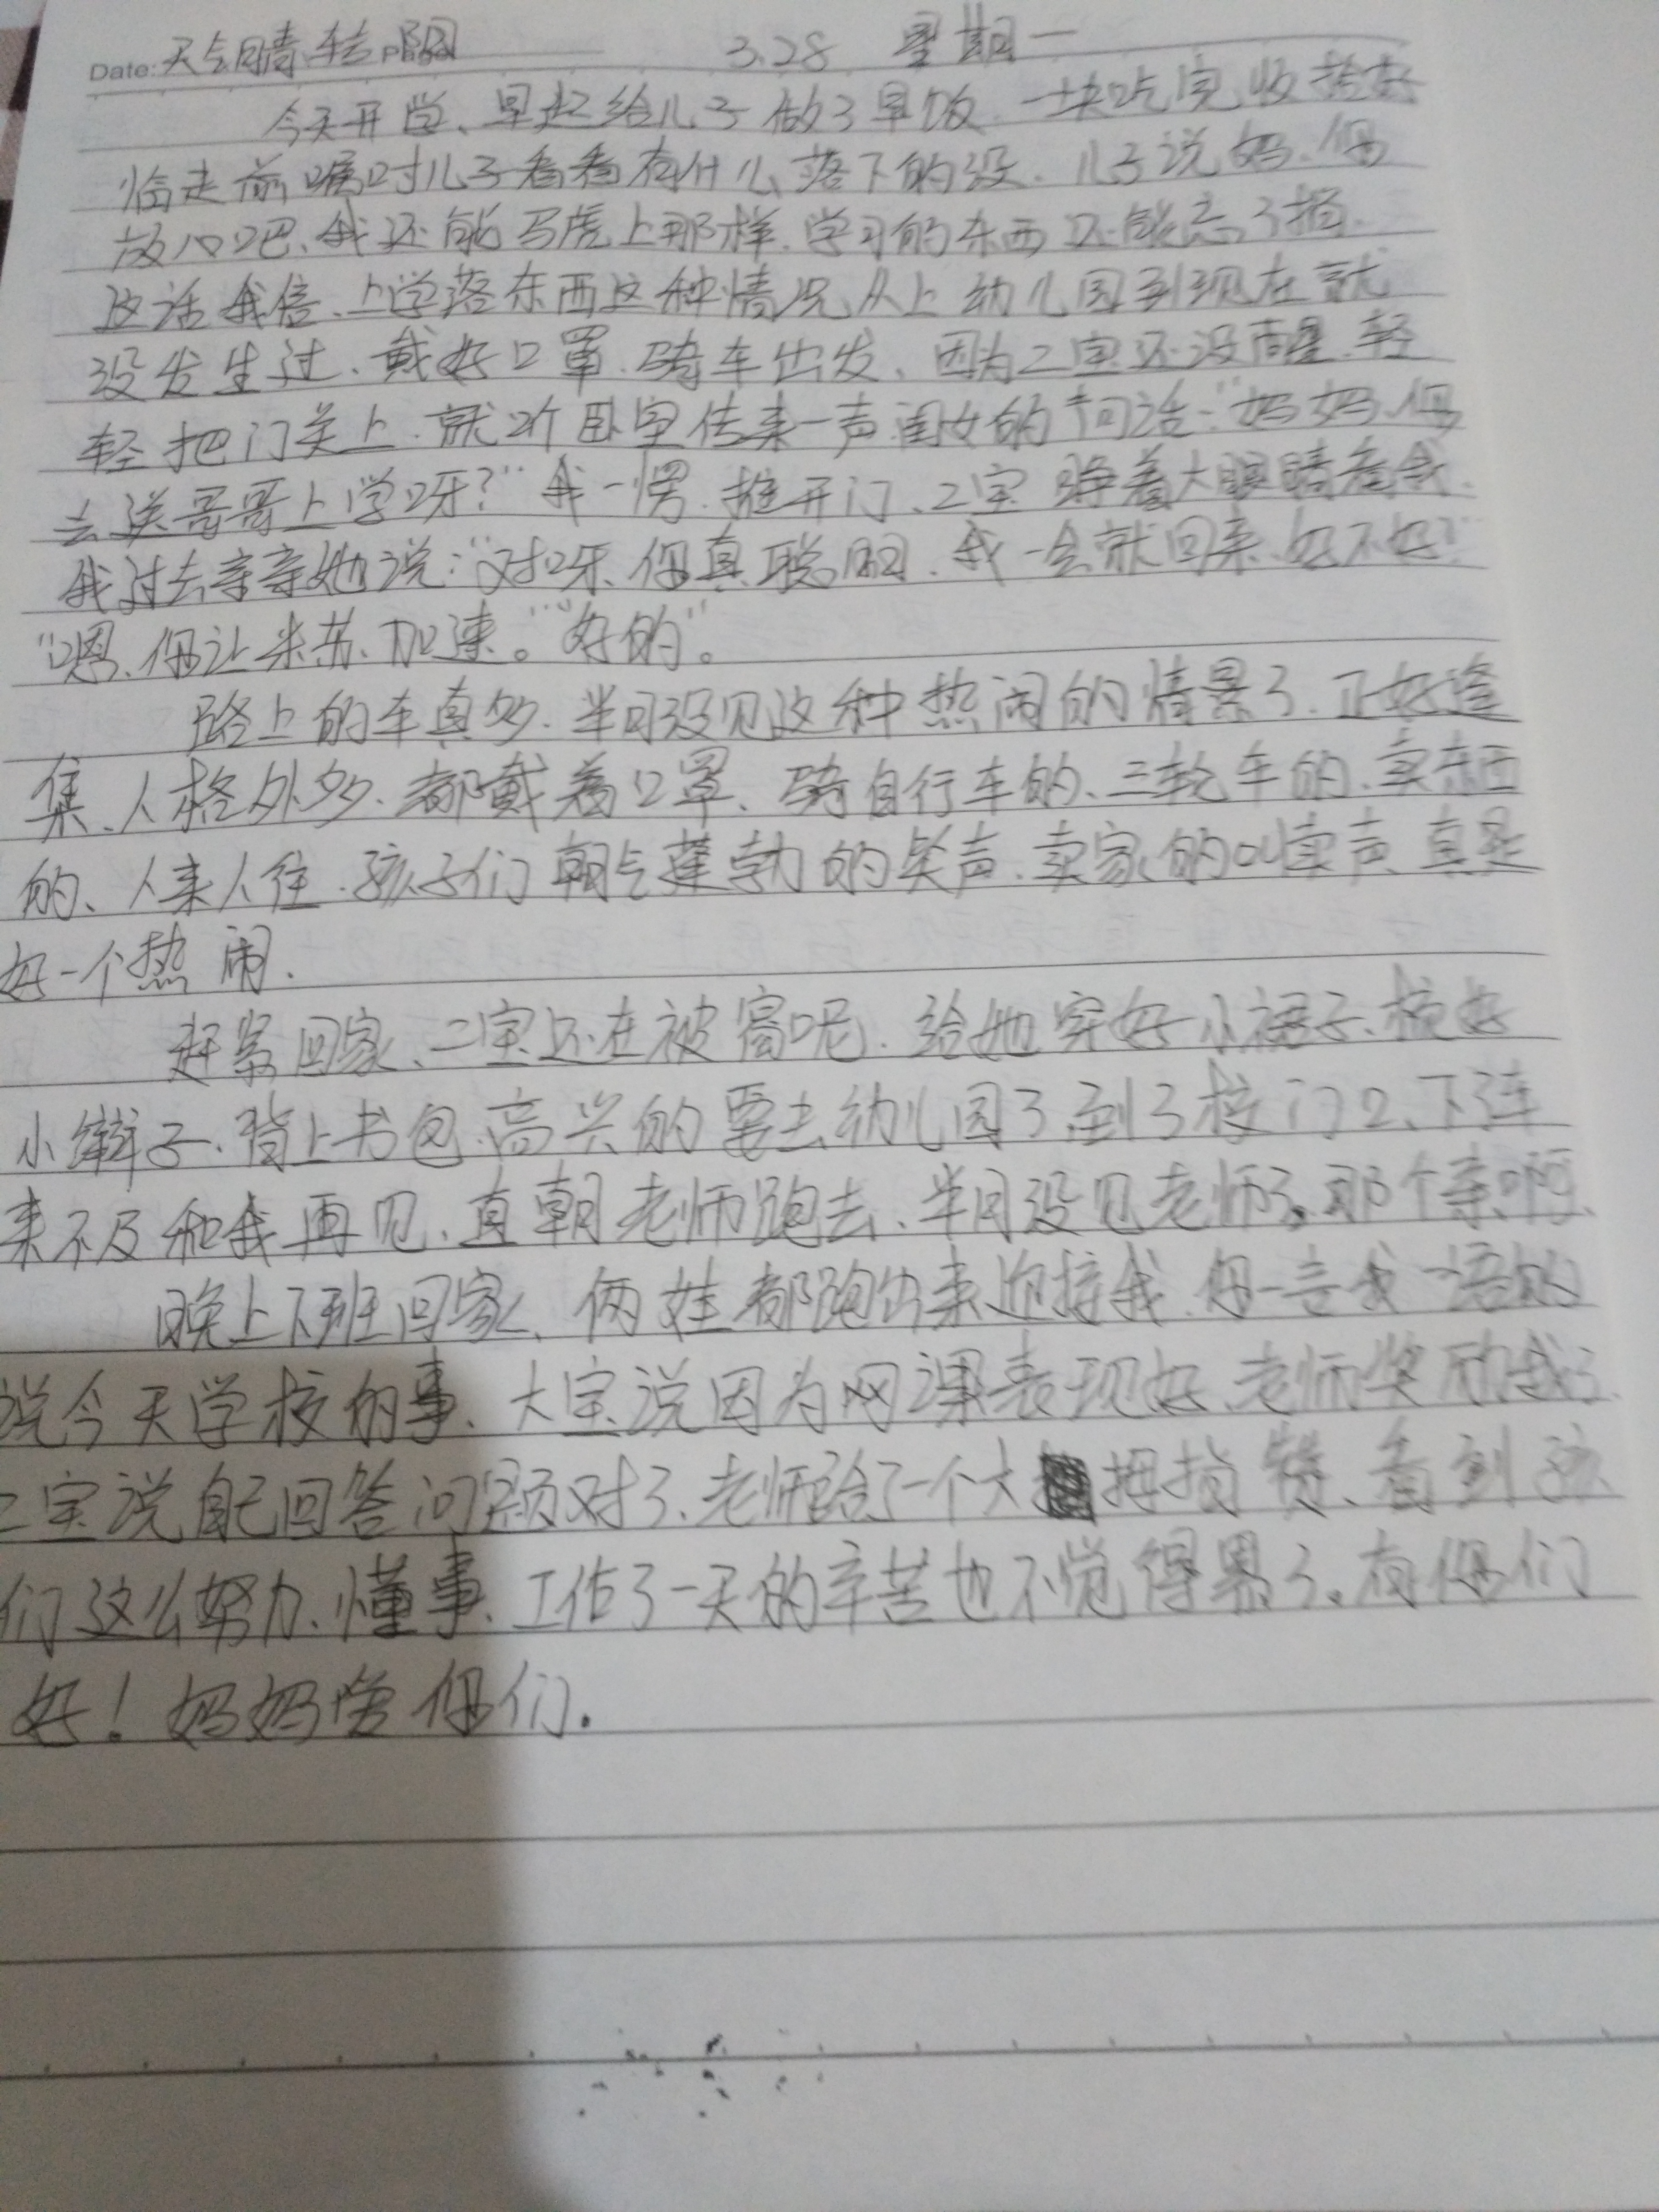 Date: 天气晴转阴 Page 3.28 星期一
今天开学、早起给儿子做了早饭、一块吃完收拾好
临走前嘱咐儿子看看有什么落下的没、儿子说妈、你
放心吧、我还能马虎上那样、学习的东西还能忘了拍.
这话我信、上学落东西这种情况从上幼儿园到现在就
没发生过、戴好口罩、骑车出发、因为二宝还没睡醒、轻
轻把门关上、就听卧室传来一声闺女的问话:"妈妈、你
去送哥哥上学呀?"我一愣、推开门、二宝睁着大眼睛看我.
我过去亲亲她说:"对呀、你真聪明、我一会就回来、好不好"
"嗯、你让米苏、加速。""好的"。
路上的车真多、半月没见这种热闹的情景了、正好逢
集、人格外多、都戴着口罩、骑自行车的、三轮车的、卖东西
的、人来人往、孩子们朝气蓬勃的笑声、卖家的叫卖声、真是
好一个热闹.
赶紧回家、二宝还在被窝呢、给她穿好小裙子、梳好
小辫子、背上书包、高兴的要去幼儿园了到了校门口、下车
来不及和我再见、直朝老师跑去、半月没见老师了。那个亲啊、
晚上下班回家、俩娃都跑出来迎接我、你一言我一语的
说今天学校的事、大宝说因为网课表现好、老师奖励我了.
二宝说自己回答问题对了、老师给了一个大拇指赞、看到孩
们这么努力、懂事、工作了一天的辛苦也不觉得累了。有你们
好!妈妈爱你们.